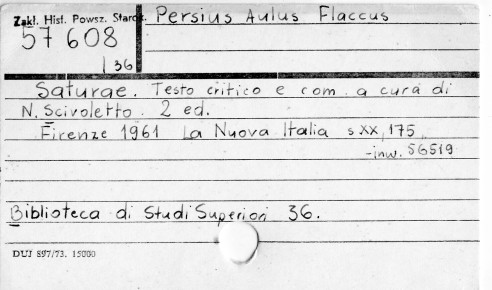 Zakł. Hist. Powsz. Staroż. Persius Aulus Flaccus
57 608
136
Saturae. Testo critico e com. a cura di
N. Scivoletto. 2 ed.
Firenze 1961 La Nuova Italia s XX, 175
-inw. 56519
Biblioteca di Studi Superiori 36.
DUJ 897/73. 15000